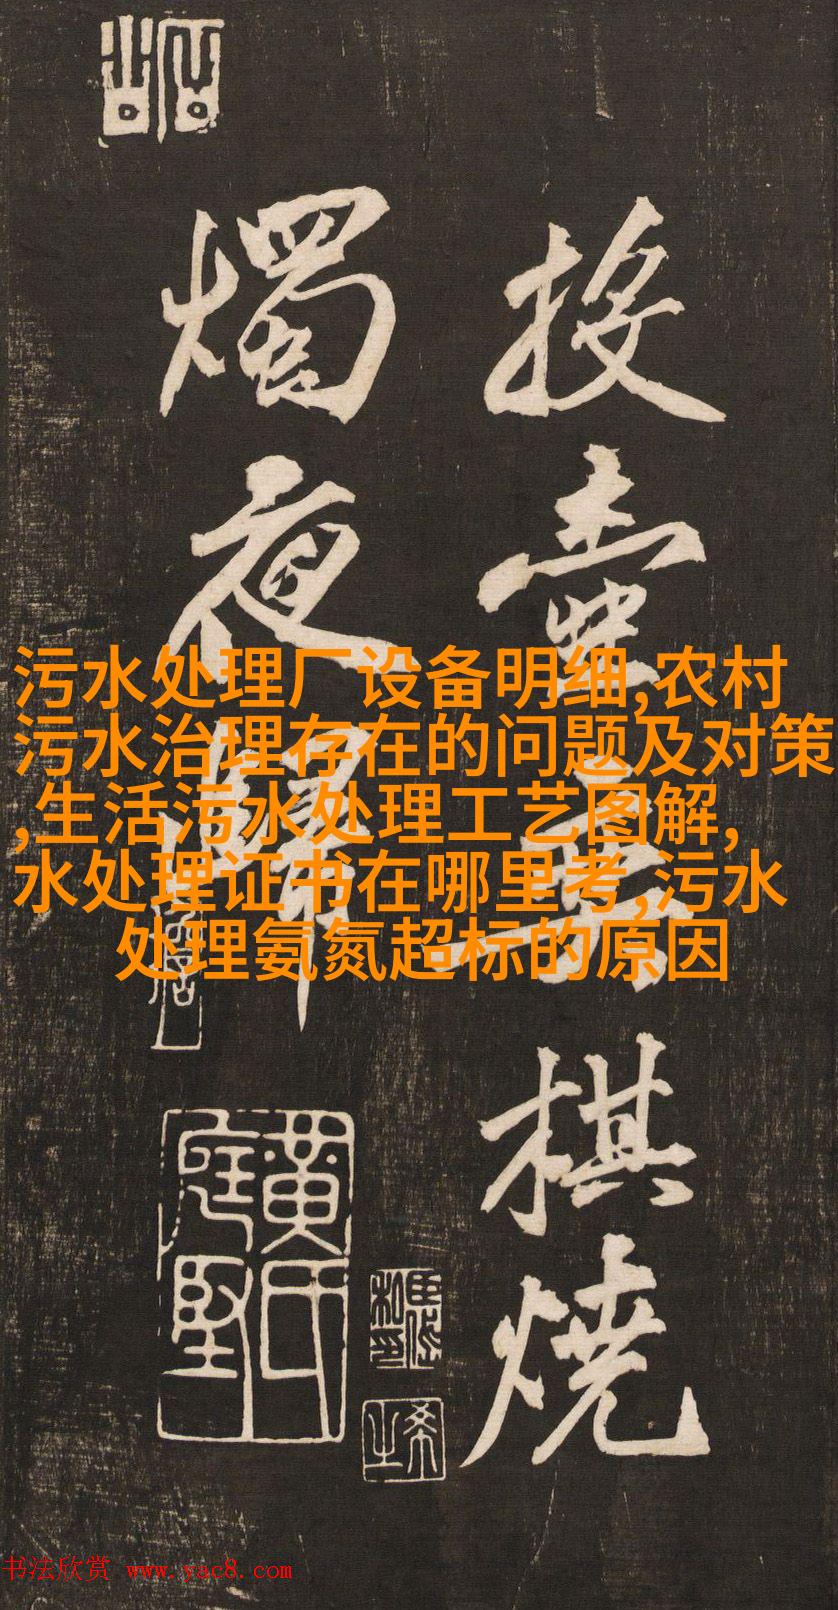 投壺棋燒
燭夜歸
污水处理厂设备明细,农村
污水治理存在的问题及对策
,生活污水处理工艺图解,
水处理证书在哪里考,污水
处理氨氮超标的原因
黄氏
庭堅
书法欣赏 www.yac8.com